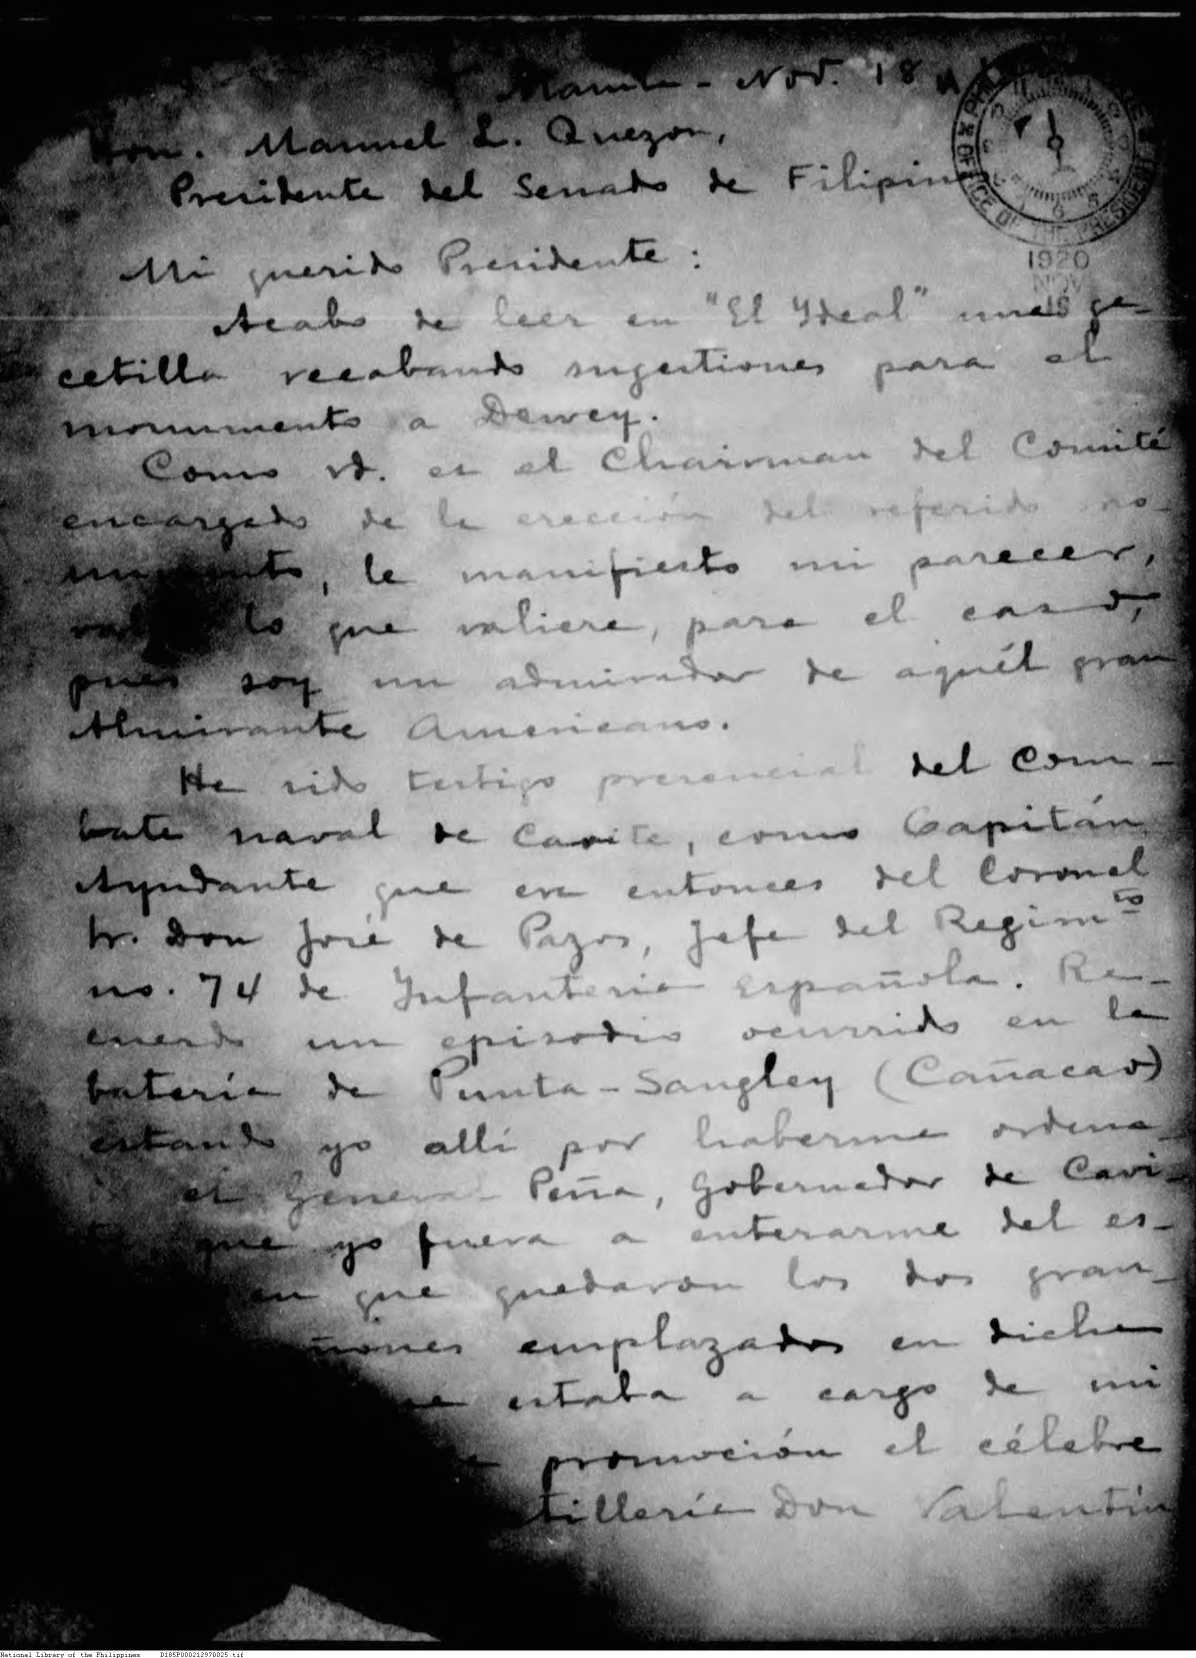 Manila - Nov. 18
Hon. Manuel L. Quezon,
Presidente del Senado de Filipin
OFFICE OF THE PRESIDENT
1920
NOV
18
Mi querido Presidente:
Acabo de leer en "El Ydeal" una ga-
cetilla recabando sugestiones para el
monumento a Dewey.
Como vd. es el Chairman del Comité
encargado de la erección del referido mo-
numento, le manifiesto mi parecer,
lo que valiere, para el caso,
pues soy un admirador de aquél gran
Almirante Americano.
He sido testigo presencial del Com-
bate naval de Cavite, como Capitán
Ayudante que era entonces del Coronel
Sr. Don José de Pazos, Jefe del Regimto
no. 74 de Infanteria Española. Re-
cuerdo un episodio ocurrido en la
batería de Punta-Sangley (Cañacao)
estando yo allí por haberme ordena-
el General Peña, Gobernador de Cavi-
que yo fuera a enterarme del es-
en que quedaron los dos gran-
ñones emplazados en dicha
estaba a cargo de mi
promoción el célebre
tillería Don Valentín
National Library of the Philippines D185P000212970025.tif